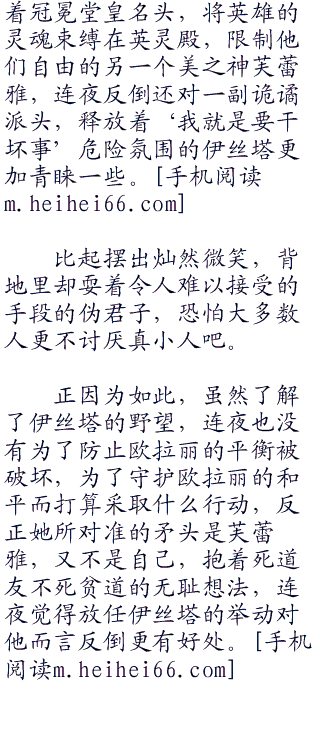 着冠冕堂皇名头，将英雄的
灵魂束缚在英灵殿，限制他
们自由的另一个美之神芙蕾
雅，连夜反倒还对一副诡谲
派头，释放着‘我就是要干
坏事’危险氛围的伊丝塔更
加青睐一些。[手机阅读
m.heihei66.com]
比起摆出灿然微笑，背
地里却耍着令人难以接受的
手段的伪君子，恐怕大多数
人更不讨厌真小人吧。
正因为如此，虽然了解
了伊丝塔的野望，连夜也没
有为了防止欧拉丽的平衡被
破坏，为了守护欧拉丽的和
平而打算采取什么行动，反
正她所对准的矛头是芙蕾
雅，又不是自己，抱着死道
友不死贫道的无耻想法，连
夜觉得放任伊丝塔的举动对
他而言反倒更有好处。[手机
阅读m.heihei66.com]